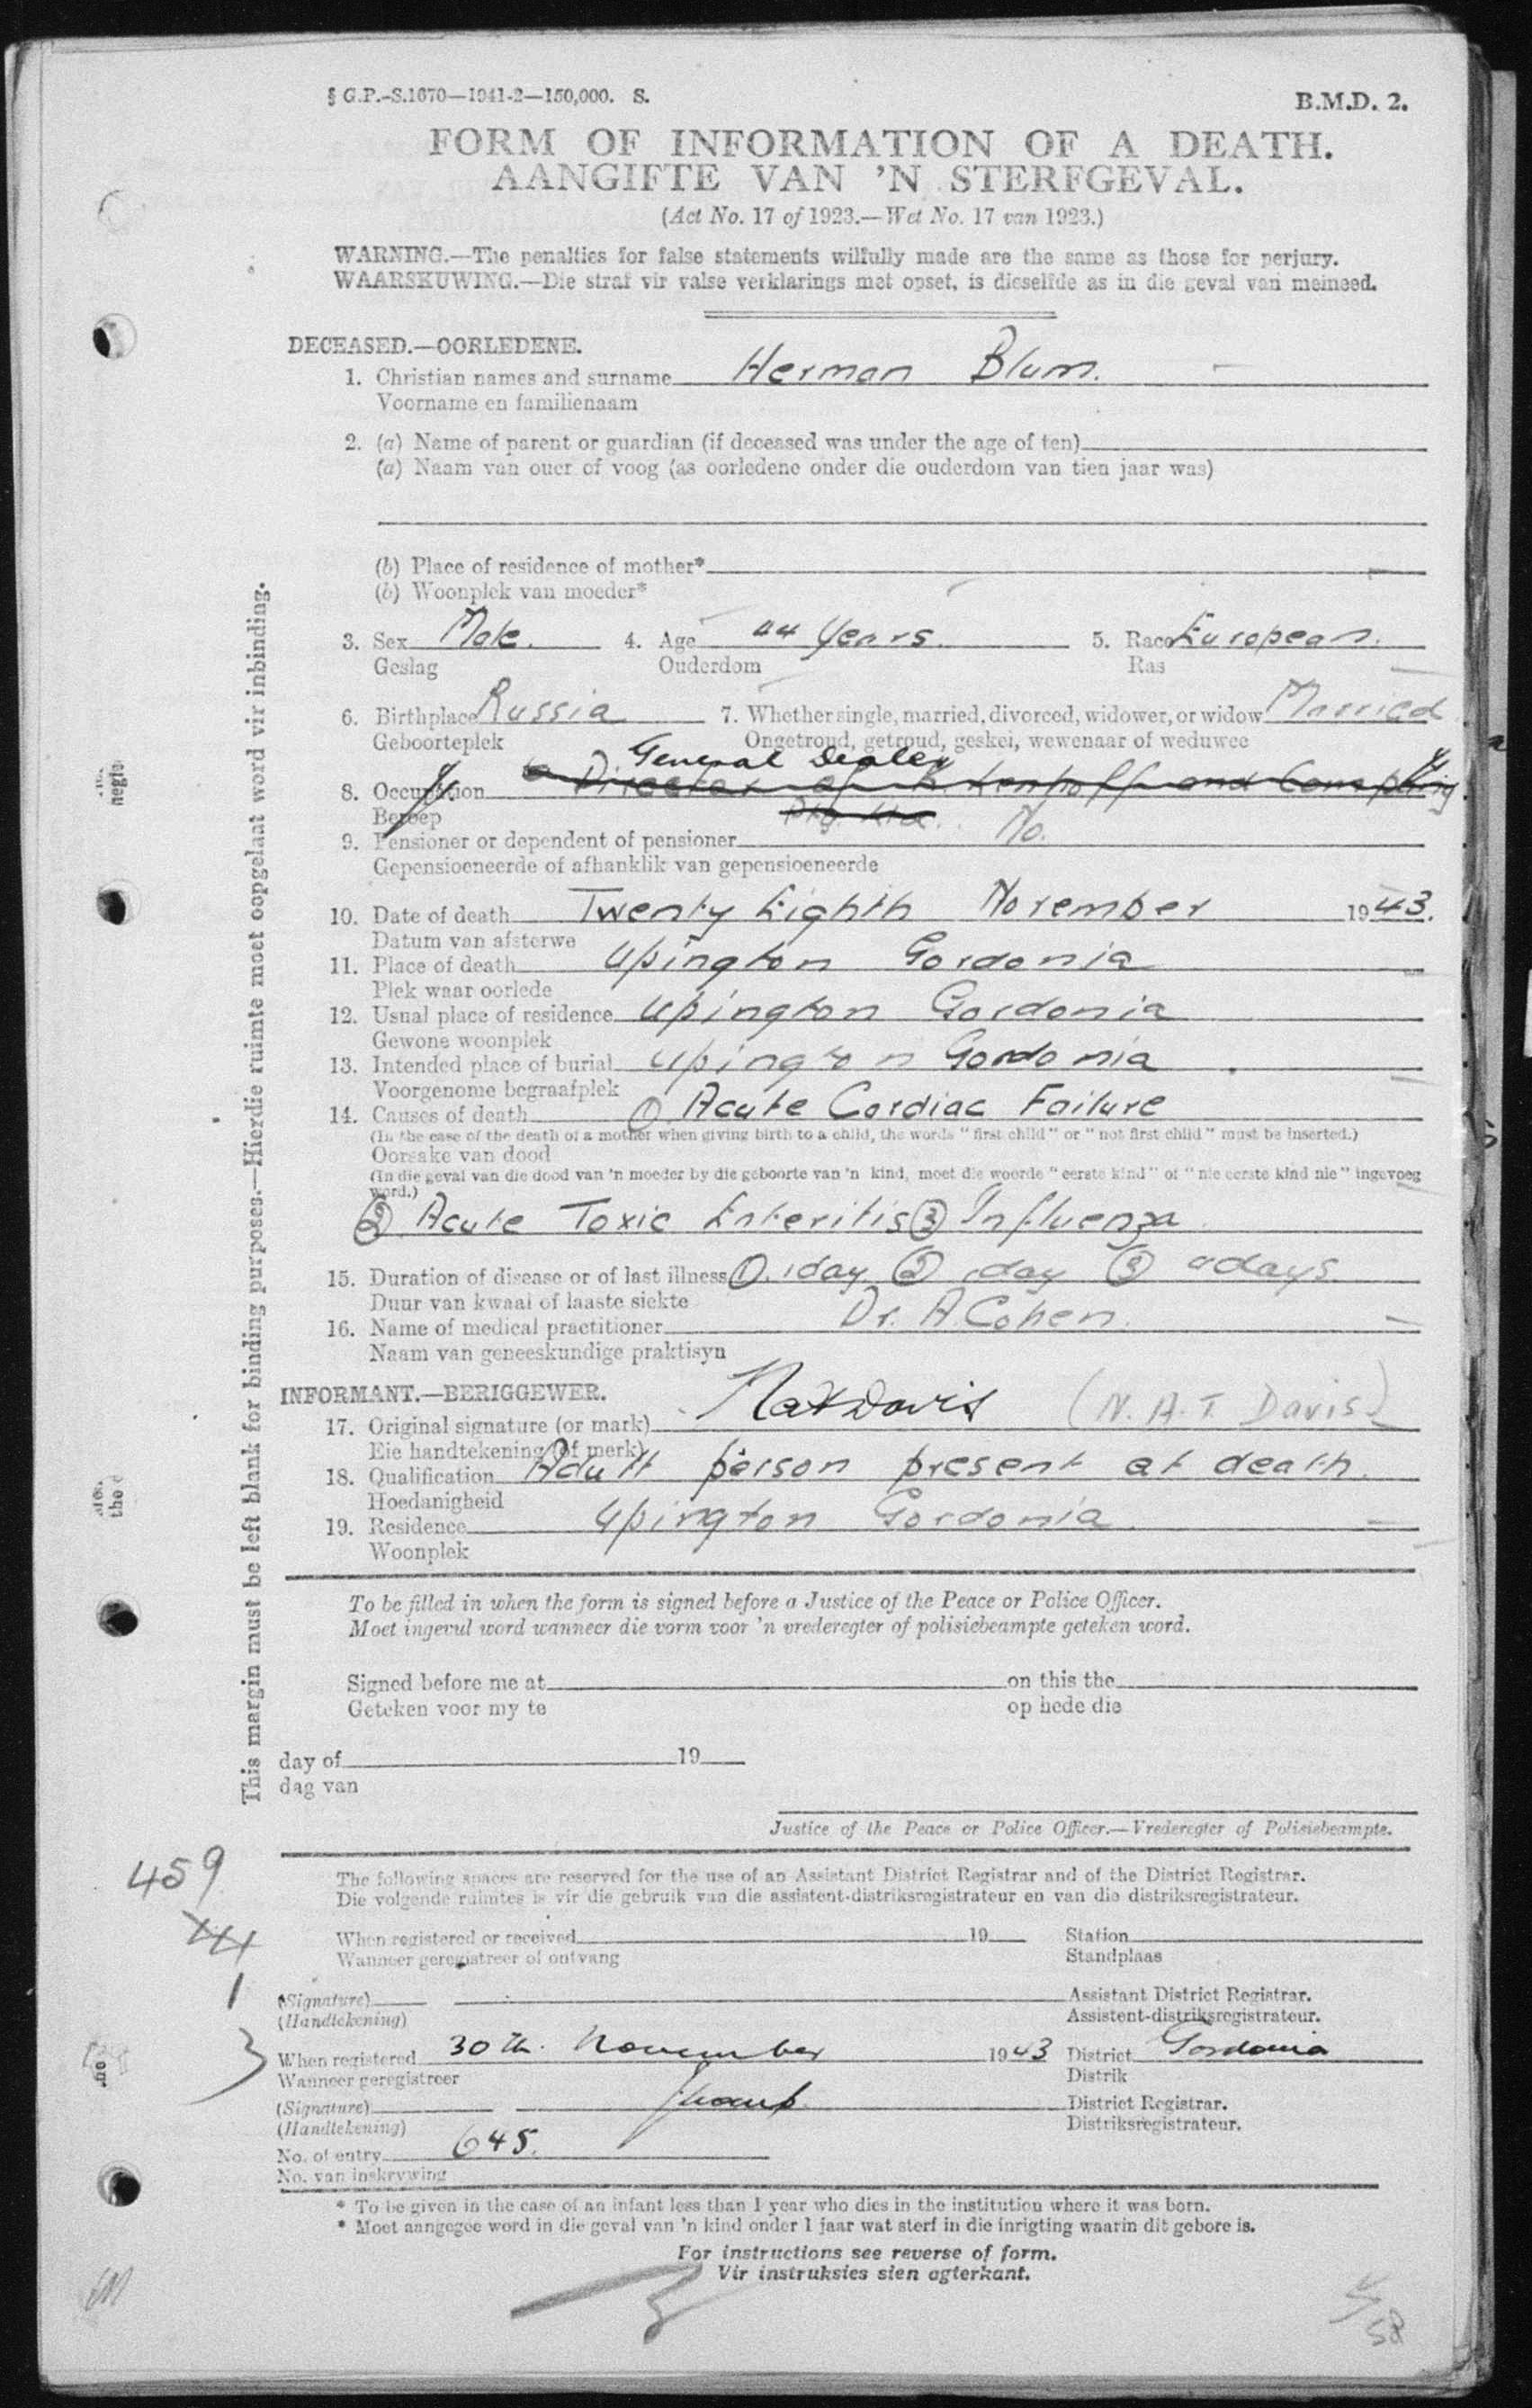 § G.P.-S.1670—1941-2—150,000. S.
B.M.D. 2.
FORM OF INFORMATION OF A DEATH.
AANGIFTE VAN 'N STERFGEVAL.
(Act No. 17 of 1923.—Wet No. 17 van 1923.)
WARNING.—The penalties for false statements wilfully made are the same as those for perjury.
WAARSKUWING.—Die straf vir valse verklarings met opset, is dieselfde as in die geval van meineed.
DECEASED.—OORLEDENE.
1. Christian names and surname Herman Blum.
Voorname en familienaam
2. (a) Name of parent or guardian (if deceased was under the age of ten)
(a) Naam van ouer of voog (as oorledene onder die ouderdom van tien jaar was)
(b) Place of residence of mother*
(b) Woonplek van moeder*
3. Sex Male. 4. Age 44 Years. 5. Race European.
Geslag Ouderdom Ras
6. Birthplace Russia 7. Whether single, married, divorced, widower, or widow Married
Geboorteplek Ongetroud, getroud, geskei, wewenaar of weduwee
General Dealer
8. Occupation Director of and Company
Beroep Pty. Ltd.
9. Pensioner or dependent of pensioner No.
Gepensioeneerde of afhanklik van gepensioeneerde
10. Date of death Twenty Eighth November 1943.
Datum van afsterwe
11. Place of death Upington Gordonia
Plek waar oorlede
12. Usual place of residence Upington Gordonia
Gewone woonplek
13. Intended place of burial Upington Gordonia
Voorgenome begraafplek
14. Causes of death ① Acute Cardiac Failure
(In the case of the death of a mother when giving birth to a child, the words "first child" or "not first child" must be inserted.)
Oorsake van dood
(In die geval van die dood van 'n moeder by die geboorte van 'n kind, moet die woorde "eerste kind" of "nie eerste kind nie" ingevoeg
word.)
② Acute Toxic Enteritis ③ Influenza
15. Duration of disease or of last illness ① 1day ② 1day ③ 4days
Duur van kwaal of laaste siekte
16. Name of medical practitioner Dr. A. Cohen.
Naam van geneeskundige praktisyn
INFORMANT.—BERIGGEWER.
17. Original signature (or mark) Nat Davis (N.A.T. Davis)
Eie handtekening (of merk)
18. Qualification Adult person present at death.
Hoedanigheid
19. Residence Upington Gordonia.
Woonplek
To be filled in when the form is signed before a Justice of the Peace or Police Officer.
Moet ingevul word wanneer die vorm voor 'n vrederegter of polisiebeampte geteken word.
Signed before me at on this the
Geteken voor my te op hede die
day of 19
dag van
Justice of the Peace or Police Officer.—Vrederegter of Polisiebeampte.
459
The following spaces are reserved for the use of an Assistant District Registrar and of the District Registrar.
Die volgende ruimtes is vir die gebruik van die assistent-distriksregistrateur en van die distriksregistrateur.
When registered or received 19 Station
Wanneer geregistreer of ontvang Standplaas
1
(Signature) Assistant District Registrar.
(Handtekening) Assistent-distriksregistrateur.
3
When registered 30th. November 1943 District Gordonia
Wanneer geregistreer Distrik
(Signature) District Registrar.
(Handtekening) Distriksregistrateur.
No. of entry 645.
No. van inskrywing
* To be given in the case of an infant less than 1 year who dies in the institution where it was born.
* Moet aangegee word in die geval van 'n kind onder 1 jaar wat sterf in die inrigting waarin dit gebore is.
For instructions see reverse of form.
Vir instruksies sien agterkant.
This margin must be left blank for binding purposes.—Hierdie ruimte moet oopgelaat word vir inbinding.